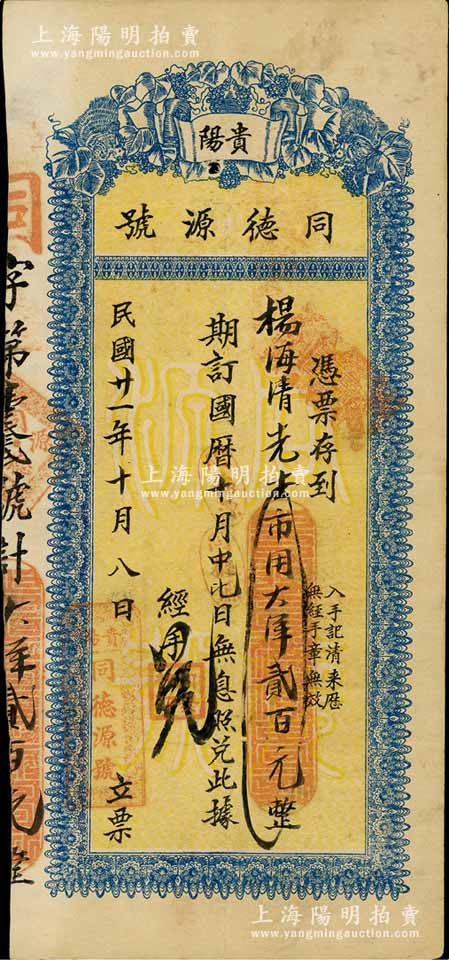 上海陽明拍賣
www.yangmingauction.com
貴陽
同德源號
憑票存到
入手記清来歷
無經手章無效
楊海清光上市用大洋貳百元整
期訂國曆月中比日無息照兑此據
經手
民國廿一年十月八日
立票
同德源號
字第號計大洋貳百元整
同
上海陽明拍賣
www.yangmingauction.com
上海陽明拍賣
www.yangmingauction.com